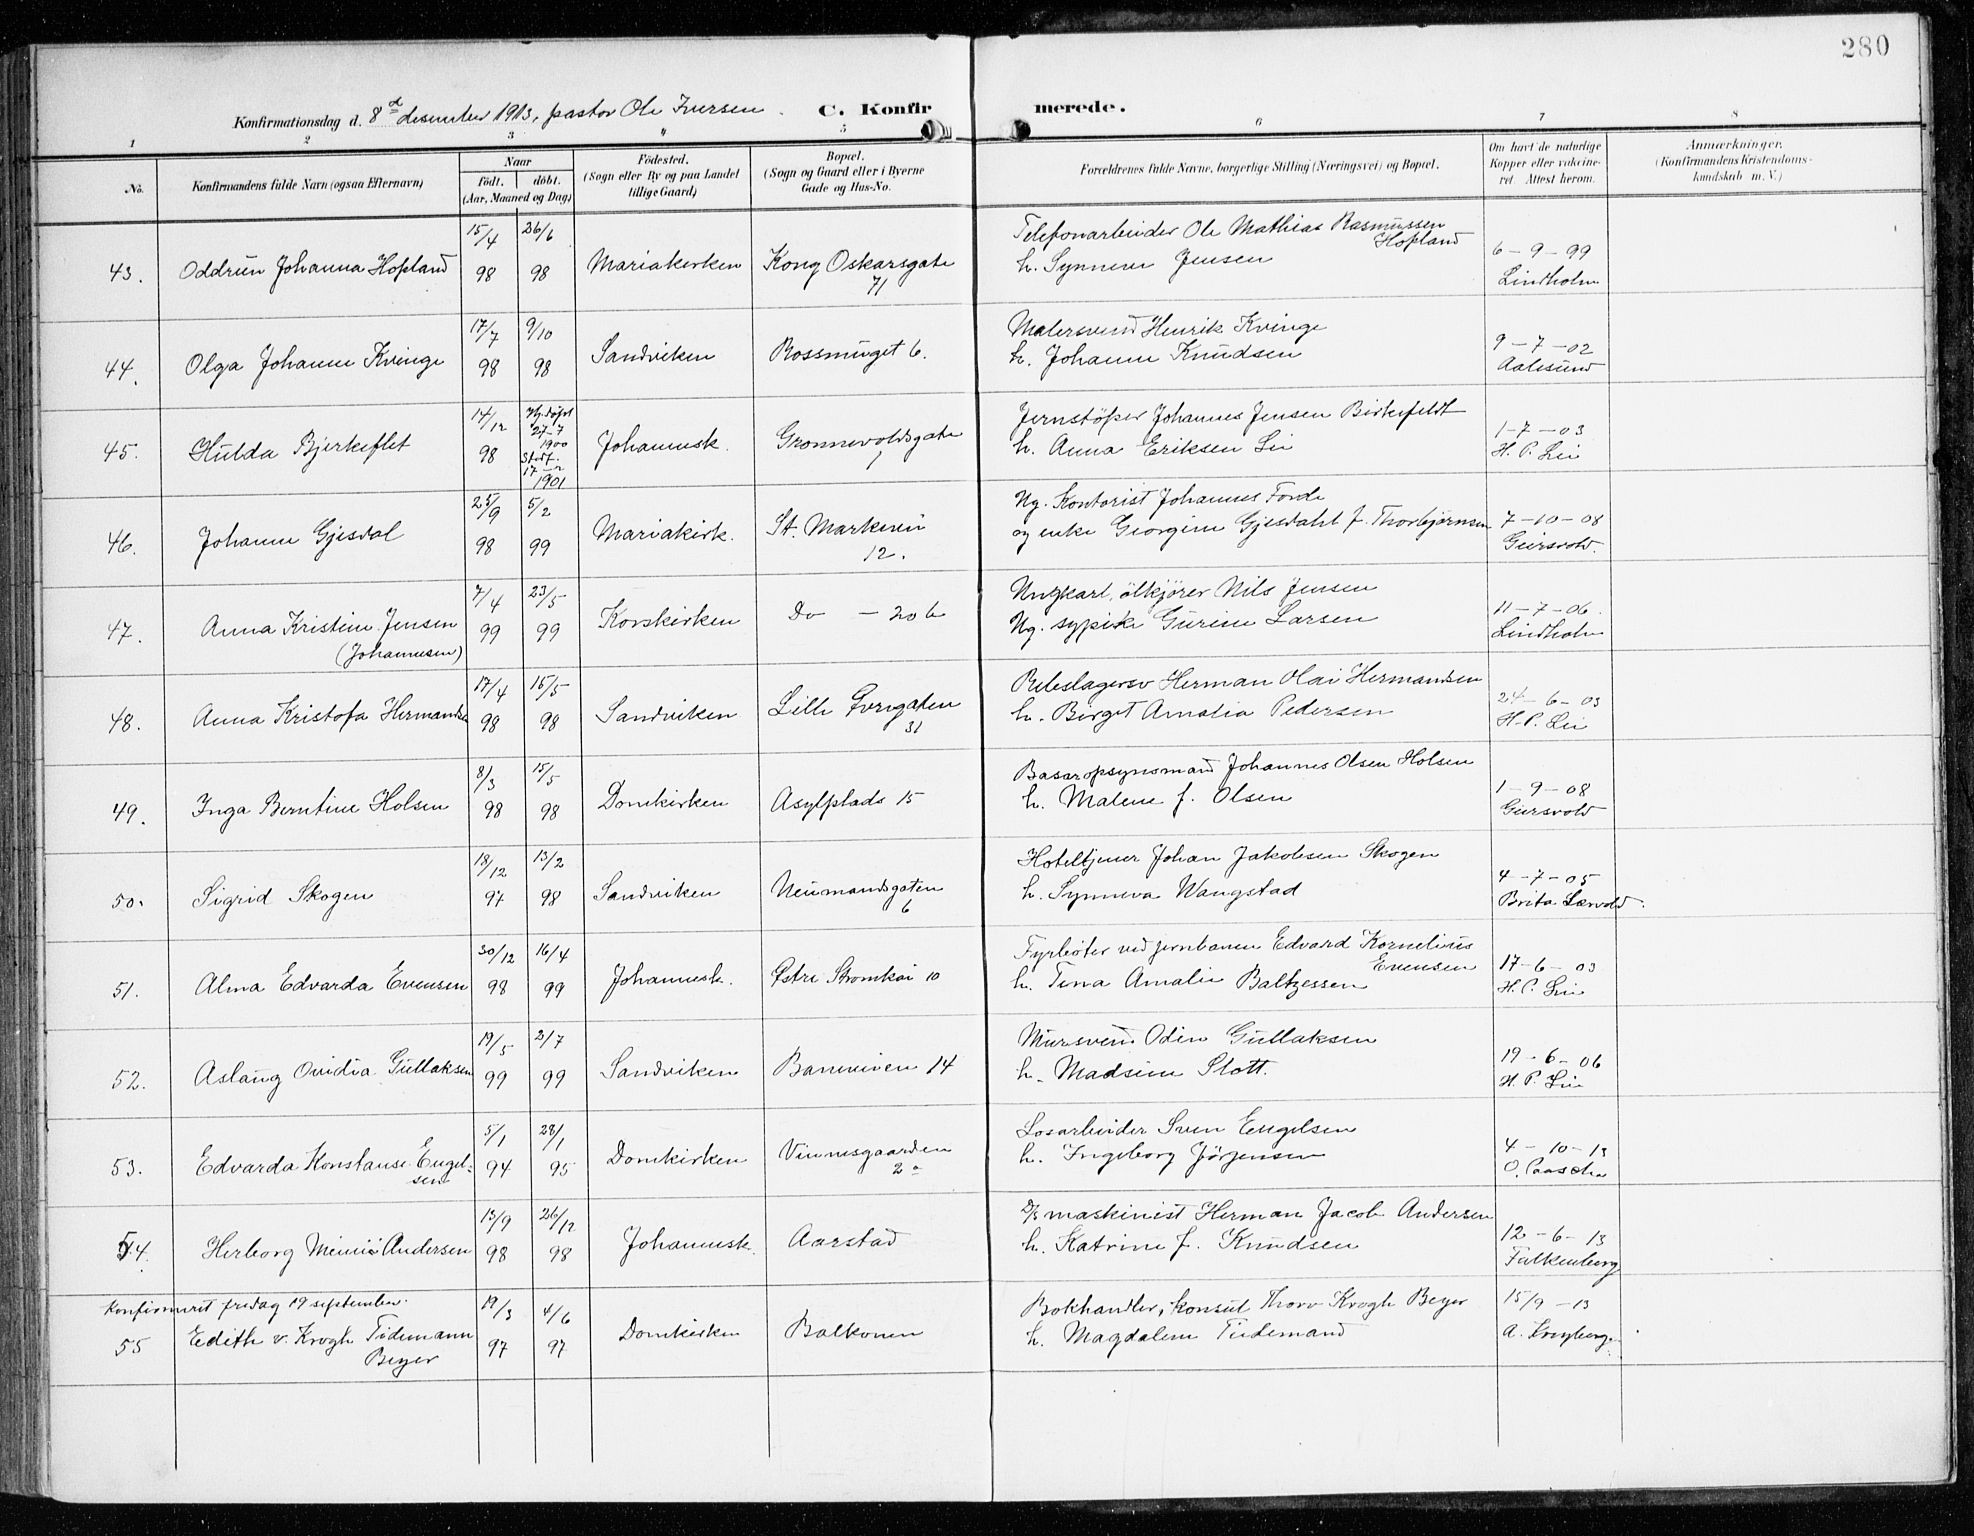 280
Konfirmationsdag d. 8de desember 1913, pastor Ole Iversen. C. Konfirmerede.
1 2 3 4 5 6 7 8
No. Konfirmandens fulde Navn (ogsaa Efternavn) Naar Född. döbt. (Aar, Maaned og Dag) Födested. (Sogn eller By og paa Landet tillige Gaard) Bopæl. (Sogn og Gaard eller i Byerne Gade og Hus-No. Forældrenes fulde Navne, borgerlige Stilling (Næringsvei) og Bopæl. Om havt de naturlige Kopper eller vakcineret. Attest herom. Anmærkninger. (Konfirmandens Kristendomskundskab m. V.)
43. Oddrun Johanna Hopland 15/4 98 26/6 98 Mariakirken Kong Oskarsgate 71 Telefonarbeider Ole Mathias Rasmussen Hopland
h. Synneve Jensen 6-9-99 Lindholm
44. Olga Johanne Kvinge 17/7 98 9/10 98 Sandviken Rossmuget 6. Malersvend Henrik Kvinge
h. Johanne Knudsen 9-7-02 Aalesund
45. Hulda Bjerkeflet 14/12 98 Hj. døpt 27-7 1900 Stedf. 17 1901 Johannesk. Grønnevoldsgate 1 Jernstöper Johannes Jensen Birkefeldt
h. Anna Eriksen Lie 1-7-03 H. P. Lie
46. Johanne Gjesdal 25/9 98 5/2 99 Mariakirk. St. Markevei 12. Ug. Kontorist Johannes Förde
og enke Georgine Gjesdahl f. Thorbjørnsen 7-10-08 Geirsvold.
47. Anna Kristine Jensen (Johannesen) 7/4 99 23/5 99 Korskirken Do - 20 b Ungkarl, ölkjörer Nils Jensen
Ug. sypike Gurine Larsen 11-7-06. Lindholm
48. Anna Kristofa Hermandsen 17/4 98 15/5 98 Sandviken Lille Øvregaten 31 Rebslagersv Herman Olai Hermandsen
h. Birget Amalia Pedersen 24-6-03 H. P. Lie
49. Inga Berntine Holsen 8/3 98 15/5 98 Domkirken Asylplads 15 Basaropsynsmand Johannes Olsen Holsen
h. Malene f. Olsen 1-9-08 Geirsvold
50. Sigrid Skogen 18/12 97 13/2 98 Sandviken Neumandsgaten 6 Hoteltjener Johan Jakobsen Skogen
h. Synneva Wangstad 4-7-05 Brita Lærvold.
51. Alma Edvarda Evensen 30/12 98 16/4 99 Johannesk. Østre Strømkai 10 Fyrbøter ved jernbanen Edvard Kornelius Evensen
h. Tina Amalie Baltzessen 17-6-03 H. P. Lie
52. Aslaug Ovidia Gullaksen 19/5 99 2/7 99 Sandviken Baneveien 14 Mursvend Odin Gullaksen
h. Madsine Stott. 19-6-06 H. P. Lie
53. Edvarda Konstanse Engelsen 5/1 94 28/1 95 Domkirken Vinnesgaarden 2a Løsarbeider Sven Engelsen
h. Ingeborg Jörgensen 4-10-13 O. Paasche
54. Herborg Minni Andersen 13/9 98 26/12 98 Johannesk. Aarstad D/s maskinist Herman Jacob Andersen
h. Katrine f. Knudsen 12-6-13 Falkenberg
Konfirmeret fredag 19 september.
55 Edith v. Krogh Tidemann Beyer 19/3 97 4/6 97 Domkirken Balkonen Bokhandler, konsul Thorv Krogh Beyer
h. Magdalene Tidemand 15/9-13 A. Kreyberg.